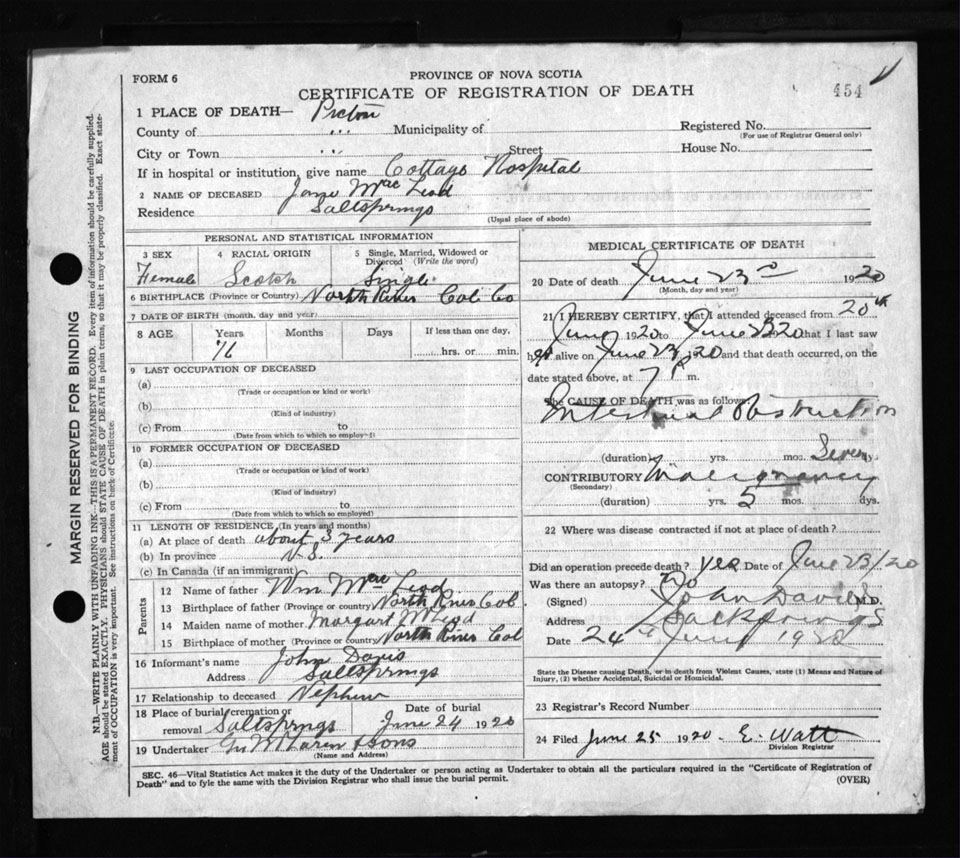 FORM 6
PROVINCE OF NOVA SCOTIA
CERTIFICATE OF REGISTRATION OF DEATH
454
1 PLACE OF DEATH— Pictou
County of " Municipality of
Registered No.
(For use of Registrar General only)
City or Town " Street House No.
If in hospital or institution, give name Cottage Hospital
2 NAME OF DECEASED Jane MacLeod
Residence Saltsprings
(Usual place of abode)
PERSONAL AND STATISTICAL INFORMATION
3 SEX 4 RACIAL ORIGIN 5 Single, Married, Widowed or Divorced (Write the word)
Female Scotch Single
6 BIRTHPLACE (Province or Country) North River Col Co
7 DATE OF BIRTH (month, day and year)
8 AGE Years Months Days If less than one day,
76 hrs. or min.
9 LAST OCCUPATION OF DECEASED
(a)
(Trade or occupation or kind or work)
(b)
(Kind of industry)
(c) From to
(Date from which to which so employed)
10 FORMER OCCUPATION OF DECEASED
(a)
(Trade or occupation or kind of work)
(b)
(Kind of industry)
(c) From to
(Date from which to which so employed)
11 LENGTH OF RESIDENCE (In years and months)
(a) At place of death about 3 years
(b) In province N.S.
(c) In Canada (if an immigrant)
Parents
12 Name of father Wm MacLeod
13 Birthplace of father (Province or country) North River Col
14 Maiden name of mother Margart McLeod
15 Birthplace of mother (Province or country) North River Col
16 Informant's name John Davis
Address Saltsprings
17 Relationship to deceased Nephew
18 Place of burial, cremation or removal Saltsprings Date of burial June 24 1920
19 Undertaker McLaren & Sons
(Name and Address)
MEDICAL CERTIFICATE OF DEATH
20 Date of death June 23rd 1920
(Month, day and year)
21 I HEREBY CERTIFY, that I attended deceased from 20th
June 1920 to June 23 20 that I last saw
her alive on June 23, 20 and that death occurred, on the
date stated above, at 7 P m.
The CAUSE OF DEATH was as follows:
Intestinal Obstruction
(duration) yrs. mos. Seven dys.
CONTRIBUTORY Malignancy
(Secondary)
(duration) yrs. 5 mos. dys.
22 Where was disease contracted if not at place of death?
Did an operation precede death? Yes Date of June 23/20
Was there an autopsy? No
(Signed) John Davis M.D.
Address
Date 24th June 1920
State the Disease causing Death, or in death from Violent Causes, state (1) Means and Nature of Injury, (2) whether Accidental, Suicidal or Homicidal.
23 Registrar's Record Number
24 Filed June 25 1920 E. Watt
Division Registrar
SEC. 46—Vital Statistics Act makes it the duty of the Undertaker or person acting as Undertaker to obtain all the particulars required in the "Certificate of Registration of
Death" and to fyle the same with the Division Registrar who shall issue the burial permit.
(OVER)
MARGIN RESERVED FOR BINDING
N.B.—WRITE PLAINLY WITH UNFADING INK—THIS IS A PERMANENT RECORD. Every item of information should be carefully supplied.
AGE should be stated EXACTLY. PHYSICIANS should STATE CAUSE OF DEATH in plain terms, so that it may be properly classified. Exact state-
ment of OCCUPATION is very important. See instructions on back of Certificate.